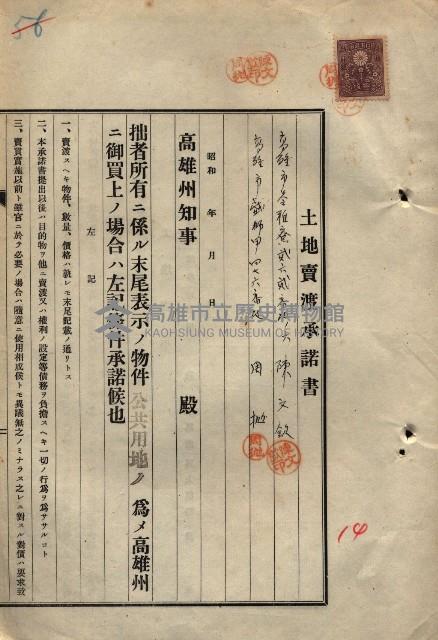 土地賣渡承諾書
高雄市
高雄市
周
陳文欽
昭和　年　月　日
高雄州知事　殿
拙者所有ニ係ル末尾表示ノ物件公共用地ノ爲メ高雄州
ニ御買上ノ場合ハ左記條件承諾候也
左記
一、賣渡スヘキ物件、數量、價格ハ總レモ末尾記載ノ通リトス
二、本承諾書提出以後ハ目的物ヲ他ニ賣渡又ハ權利ノ設定等債務ヲ負擔スヘキ一切ノ行爲ヲ爲ササルコト
三、賣買實施以前ト雖官ニ於テ必要ノ場合ハ隨意ニ使用相成候トモ異議無之ノミナラス之レニ對スル對價ハ要求致
高雄市立歷史博物館
KAOHSIUNG MUSEUM OF HISTORY
56
14